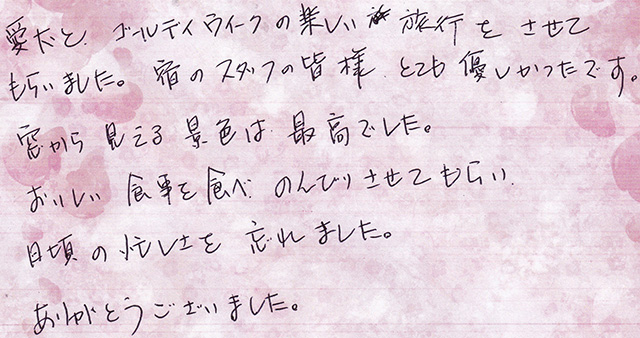 愛犬と、ゴールディウィークの楽しい 旅行をさせて
もらいました。宿のスタッフの皆様 とても優しかったです。
窓から見える景色は最高でした。
おいしい食事を食べ のんびりさせてもらい
日頃の忙しさを忘れました。
ありがとうございました。